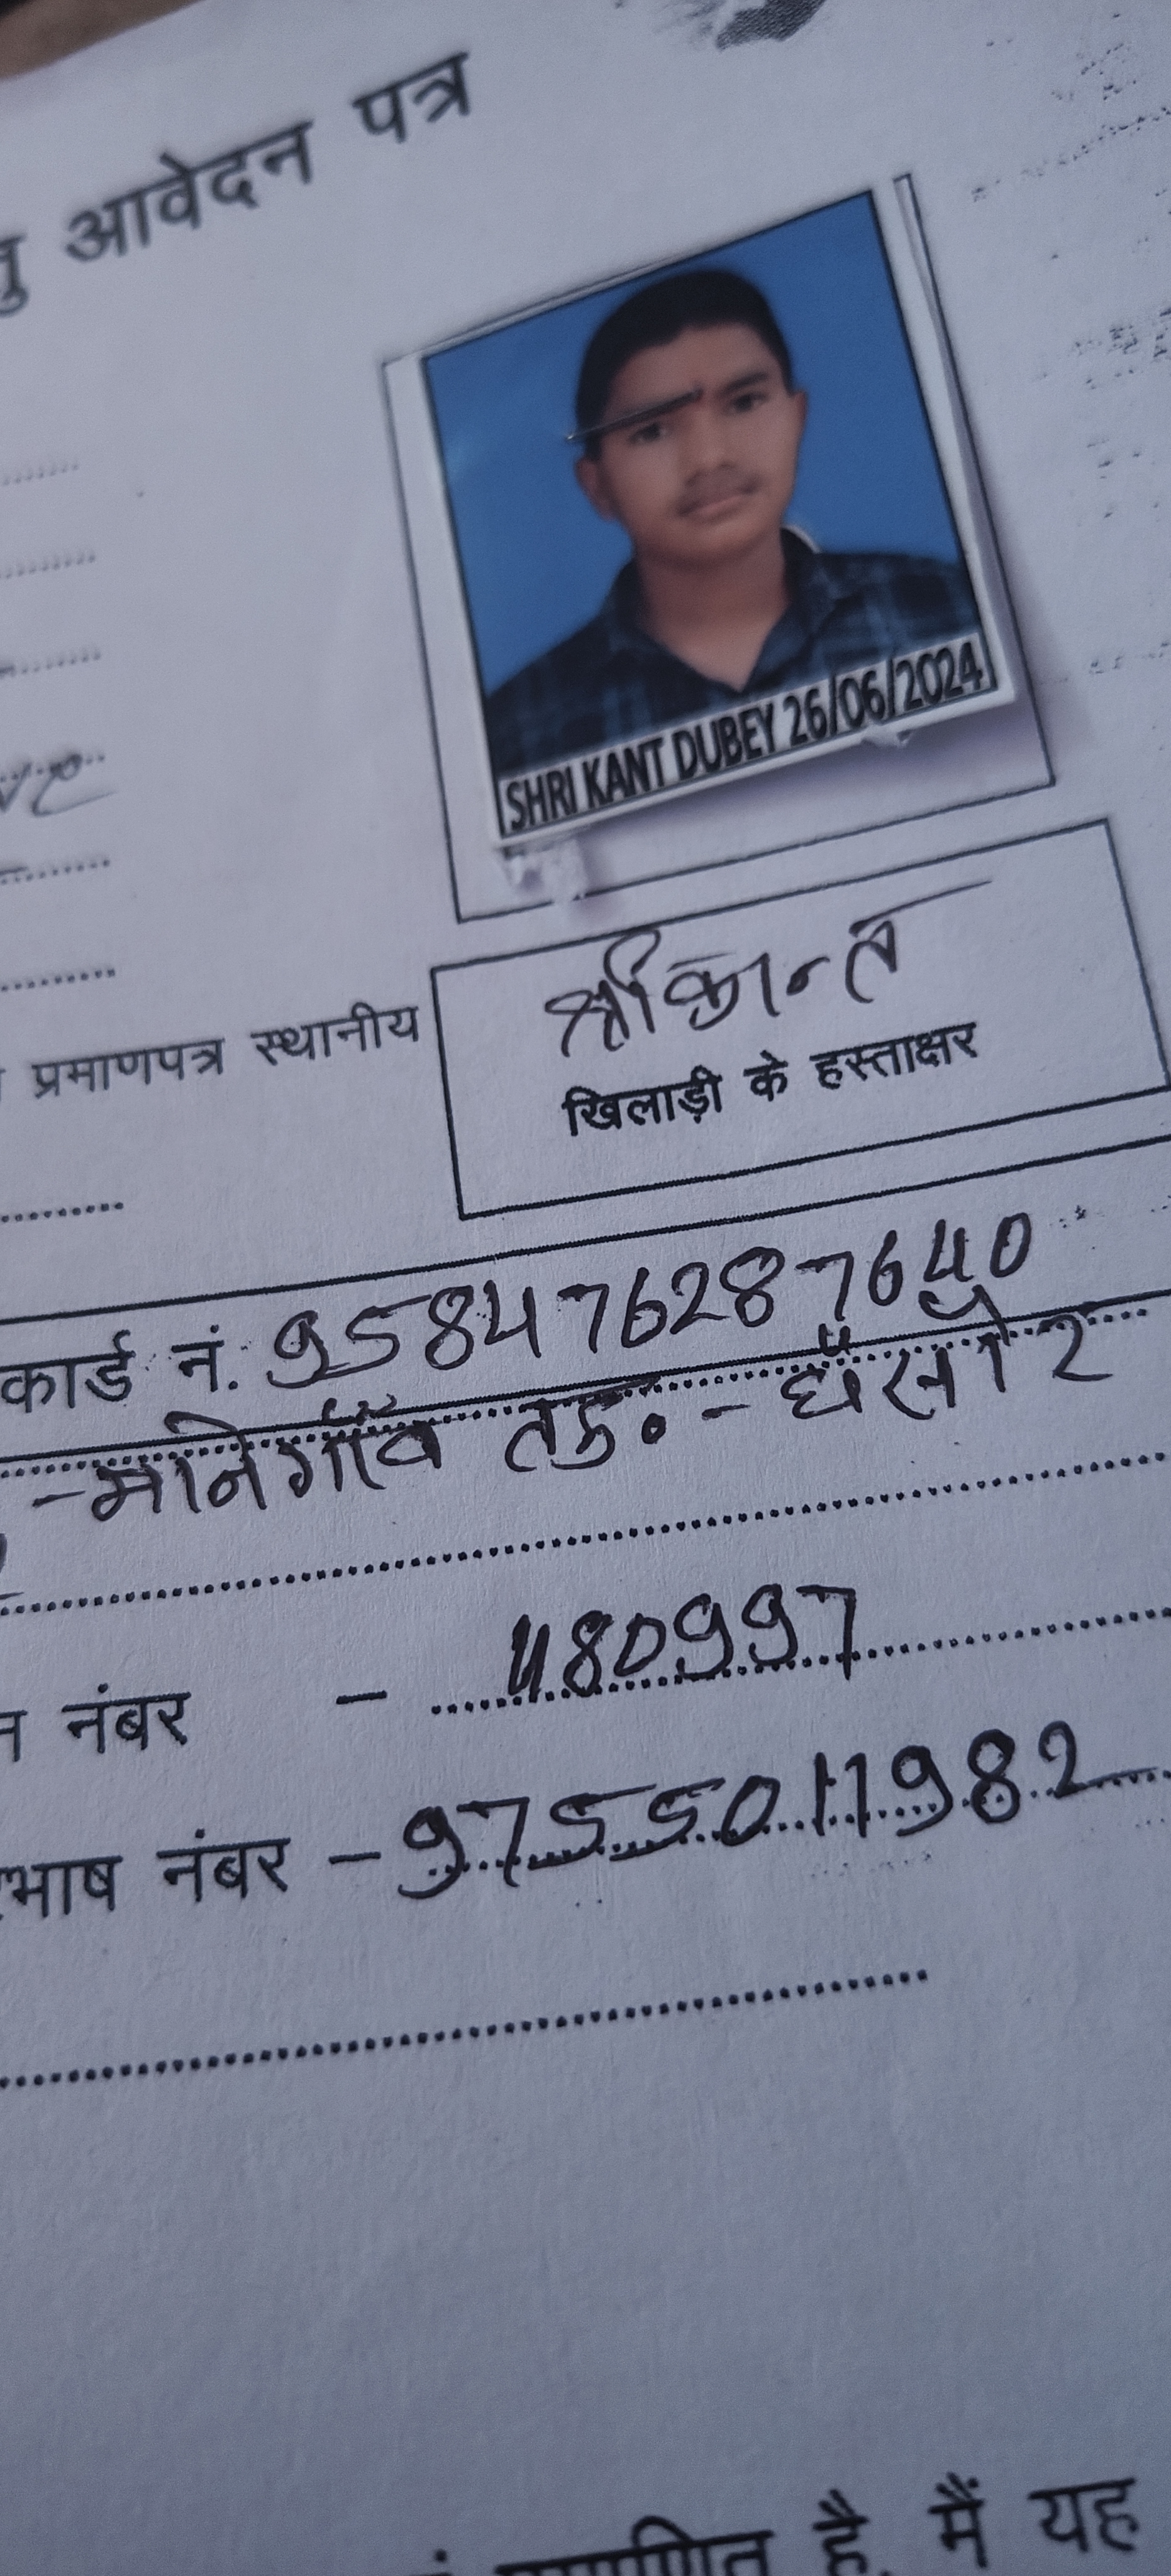 आवेदन पत्र
SHRI KANT DUBEY 26/06/2024
श्रीकान्त
प्रमाणपत्र स्थानीय
खिलाड़ी के हस्ताक्षर
कार्ड नं. 958476287640
-मानेगाँव तह.- घंसौर
नंबर - 480997
नंबर - 9755011982
है. मैं यह